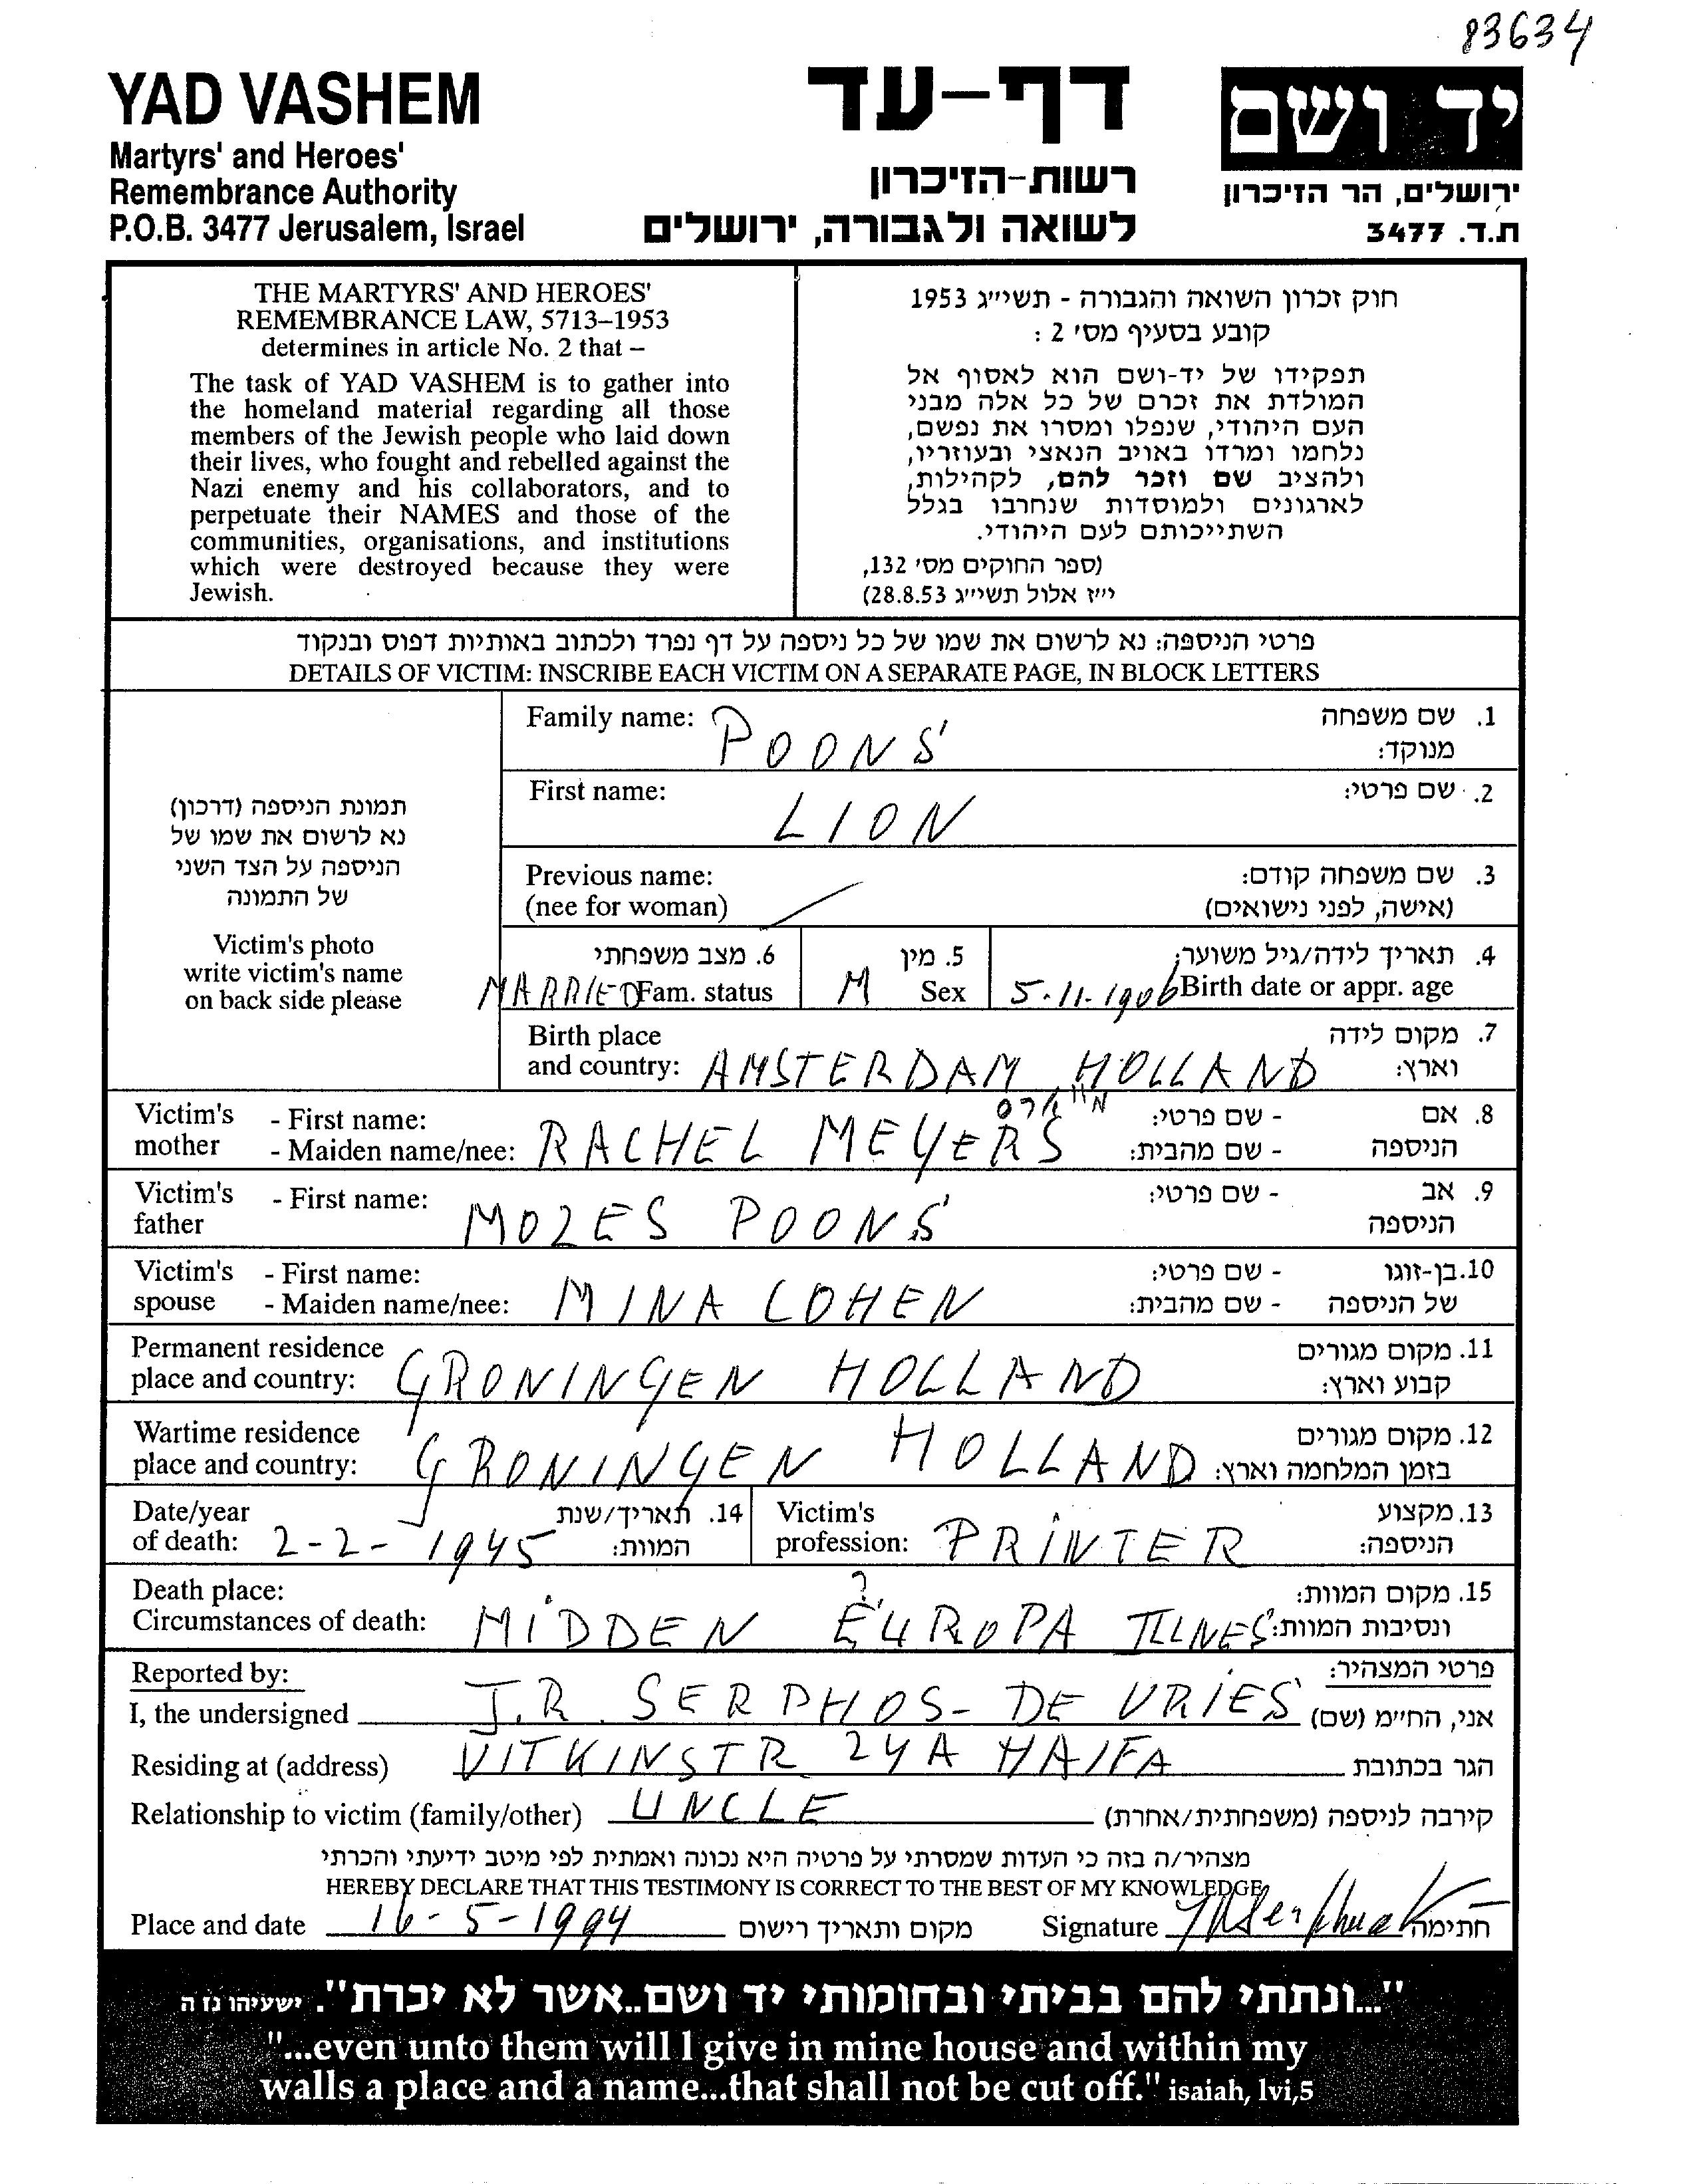 83634
YAD VASHEM
Martyrs' and Heroes'
Remembrance Authority
P.O.B. 3477 Jerusalem, Israel
דף-עד
רשות-הזיכרון
לשואה ולגבורה, ירושלים
יד ושם
ירושלים, הר הזיכרון
ת.ד. 3477
THE MARTYRS' AND HEROES'
REMEMBRANCE LAW, 5713–1953
determines in article No. 2 that –
The task of YAD VASHEM is to gather into
the homeland material regarding all those
members of the Jewish people who laid down
their lives, who fought and rebelled against the
Nazi enemy and his collaborators, and to
perpetuate their NAMES and those of the
communities, organisations, and institutions
which were destroyed because they were
Jewish.
חוק זכרון השואה והגבורה - תשי״ג 1953
קובע בסעיף מס׳ 2 :
תפקידו של יד-ושם הוא לאסוף אל
המולדת את זכרם של כל אלה מבני
העם היהודי, שנפלו ומסרו את נפשם,
נלחמו ומרדו באויב הנאצי ובעוזריו,
ולהציב שם וזכר להם, לקהילות,
לארגונים ולמוסדות שנחרבו בגלל
השתייכותם לעם היהודי.
(ספר החוקים מס׳ 132,
י״ז אלול תשי״ג 28.8.53)
פרטי הניספה: נא לרשום את שמו של כל ניספה על דף נפרד ולכתוב באותיות דפוס ובנקוד
DETAILS OF VICTIM: INSCRIBE EACH VICTIM ON A SEPARATE PAGE, IN BLOCK LETTERS
תמונת הניספה (דרכון)
נא לרשום את שמו של
הניספה על הצד השני
של התמונה
Victim's photo
write victim's name
on back side please
Family name: POONS 1. שם משפחה
מנוקד:
First name: LION 2. שם פרטי:
Previous name: 3. שם משפחה קודם:
(nee for woman) (אישה, לפני נישואים)
6. מצב משפחתי 5. מין 4. תאריך לידה/גיל משוער:
MARRIED Fam. status M Sex 5-11-1906 Birth date or appr. age
Birth place 7. מקום לידה
and country: AMSTERDAM HOLLAND וארץ:
Victim's - First name: - שם פרטי: 8. אם
mother - Maiden name/nee: RACHEL MEYERS - שם מהבית: הניספה
Victim's - First name: - שם פרטי: 9. אב
father MOZES POONS הניספה
Victim's - First name: - שם פרטי: 10. בן-זוגו
spouse - Maiden name/nee: MINA COHEN - שם מהבית: של הניספה
Permanent residence 11. מקום מגורים
place and country: GRONINGEN HOLLAND קבוע וארץ:
Wartime residence 12. מקום מגורים
place and country: GRONINGEN HOLLAND בזמן המלחמה וארץ:
Date/year 14. תאריך/שנת Victim's 13. מקצוע
of death: 2-2-1945 המוות: profession: PRINTER הניספה:
Death place: ? 15. מקום המוות:
Circumstances of death: MIDDEN EUROPA ונסיבות המוות:
Reported by: פרטי המצהיר:
I, the undersigned J.R. SERPHOS-DE VRIES אני, החי״מ (שם)
Residing at (address) VITKINSTR 24A HAIFA הגר בכתובת
Relationship to victim (family/other) UNCLE קירבה לניספה (משפחתית/אחרת)
מצהיר/ה בזה כי העדות שמסרתי על פרטיה היא נכונה ואמתית לפי מיטב ידיעתי והכרתי
HEREBY DECLARE THAT THIS TESTIMONY IS CORRECT TO THE BEST OF MY KNOWLEDGE
Place and date 16-5-1994 מקום ותאריך רישום Signature חתימה
"...ונתתי להם בביתי ובחומותי יד ושם..אשר לא יכרת". ישעיהו נו ה
"...even unto them will I give in mine house and within my
walls a place and a name...that shall not be cut off." isaiah, lvi,5